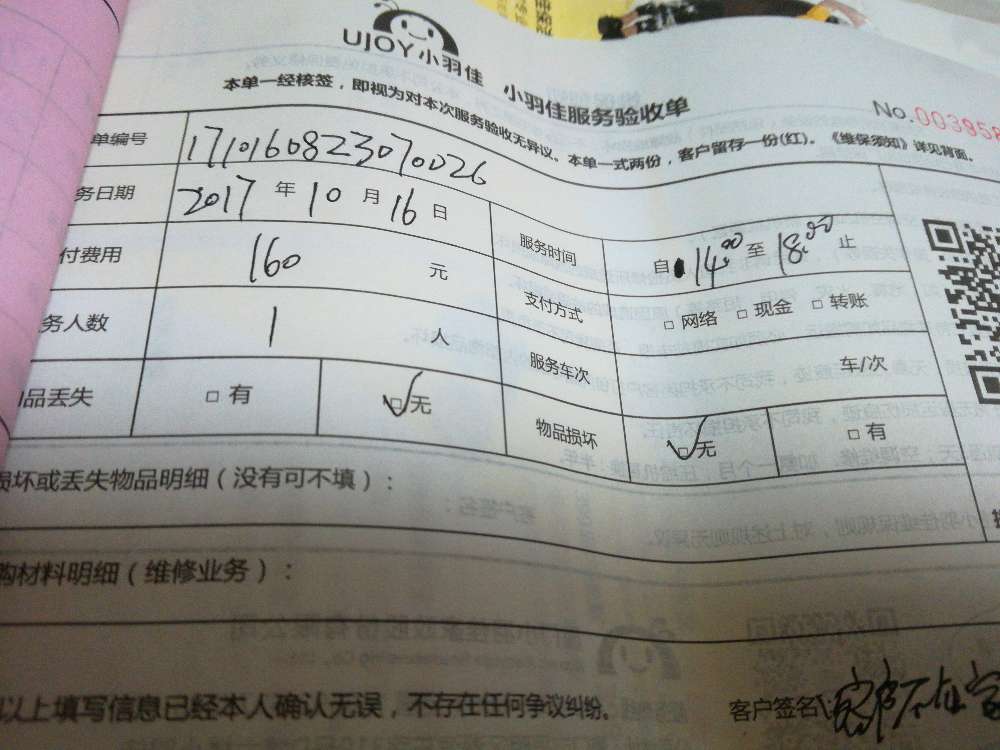 UJOY小羽佳 小羽佳服务验收单
No.003958
本单一经核签，即视为对本次服务验收无异议。本单一式两份，客户留存一份(红)。《维保须知》详见背面。
单编号 1710160823070026
务日期 2017 年 10 月 16 日 服务时间 自 14:00 至 18:00 止
付费用 160 元 支付方式 □ 网络 □ 现金 □ 转账
务人数 1 人 服务车次 车/次
品丢失 □ 有 ☑ 无 物品损坏 ☑ 无 □ 有
损坏或丢失物品明细（没有可不填）：
购材料明细（维修业务）：
以上填写信息已经本人确认无误，不存在任何争议纠纷。 客户签名: 客户不在家